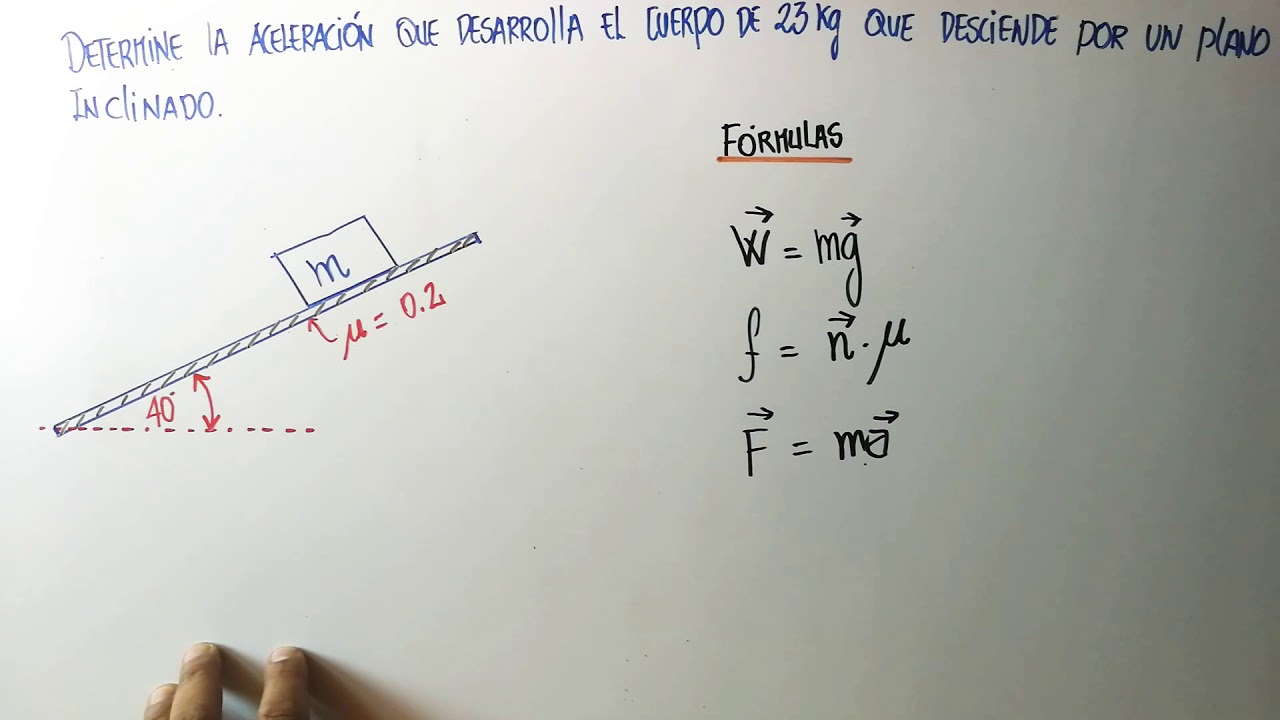 DETERMINE LA ACELERACIÓN QUE DESARROLLA EL CUERPO DE 23 Kg QUE DESCIENDE POR UN PLANO
INCLINADO.
FÓRMULAS
m
μ = 0.2
40°
W⃗ = mg⃗
f = n⃗ · μ
F⃗ = ma⃗